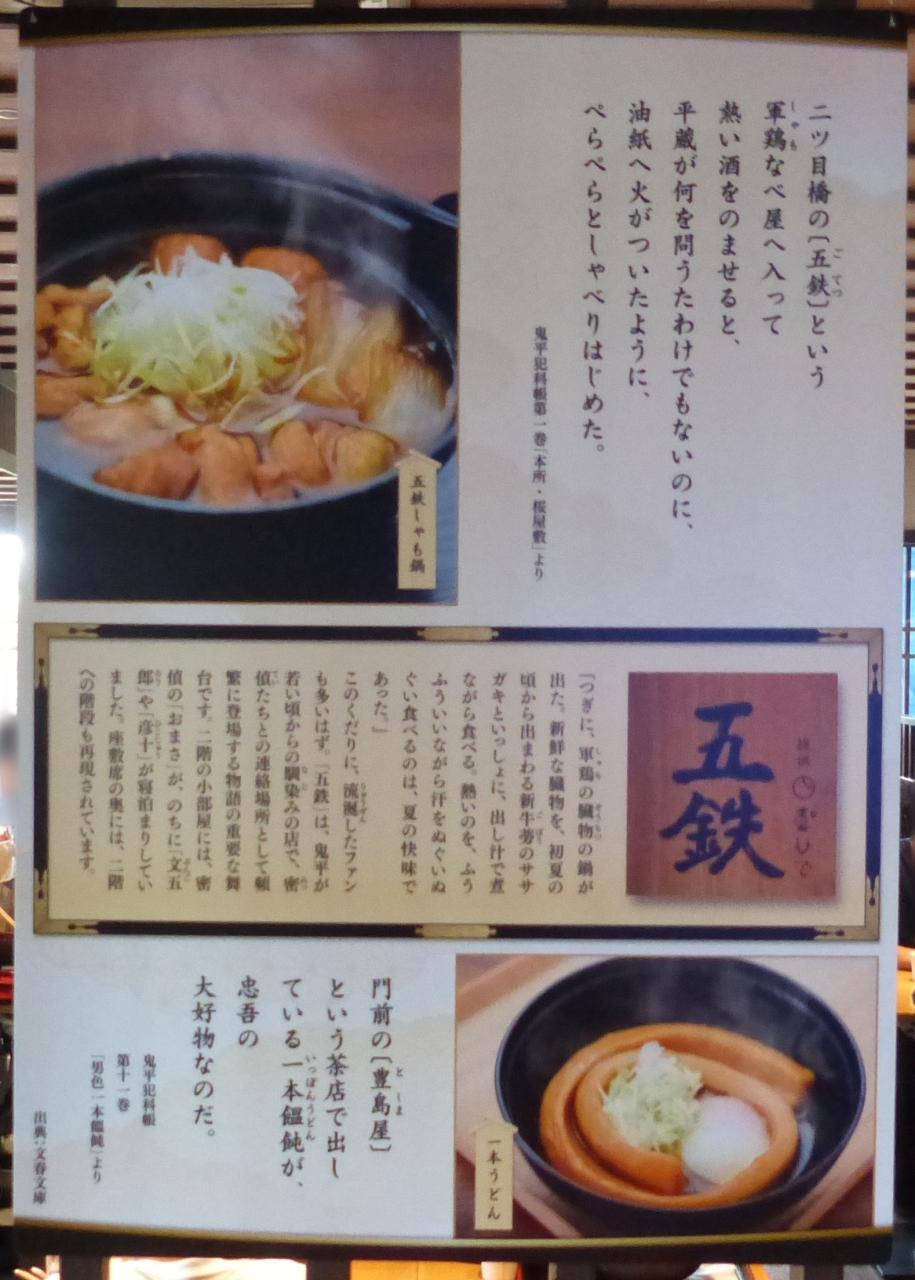 二ツ目橋の〔五鉄〕という
軍鶏なべ屋へ入って
熱い酒をのませると、
平蔵が何を問うたわけでもないのに、
油紙へ火がついたように、
ぺらぺらとしゃべりはじめた。
鬼平犯科帳第一巻「本所・桜屋敷」より
五鉄しゃも鍋
五鉄
「つぎに、軍鶏の臓物の鍋が
出た。新鮮な臓物を、初夏の
頃から出まわる新牛蒡のササ
ガキといっしょに、出し汁で煮
ながら食べる。熱いのを、ふう
ふういいながら汗をぬぐいぬ
ぐい食べるのは、夏の快味で
あった。」
このくだりに、流涎したファン
も多いはず。「五鉄」は、鬼平が
若い頃からの馴染みの店で、密
偵たちとの連絡場所として頻
繁に登場する物語の重要な舞
台です。二階の小部屋には、密
偵の「おまさ」が、のちに「文五
郎」や「彦十」が寝泊まりしてい
ました。座敷席の奥には、二階
への階段も再現されています。
門前の〔豊島屋〕
という茶店で出し
ている一本饂飩が、
忠吾の
大好物なのだ。
鬼平犯科帳
第十一巻
「男色一本饂飩」より
出典：文春文庫
一本うどん